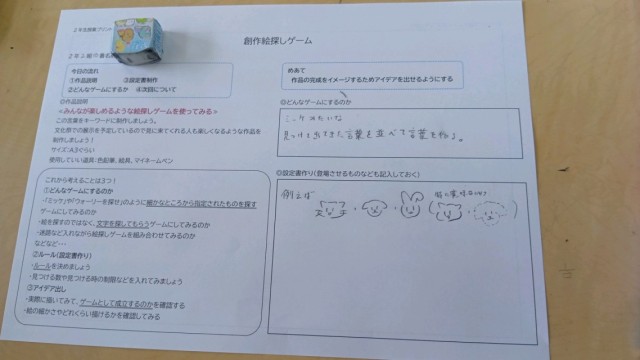 ２年授業プリント
創作絵探しゲーム
２年　組
今日の流れ
①作品説明　③設定書制作
②どんなゲームにするか　④次回について
めあて
作品の完成をイメージするためアイデアを出せるようにする
◎作品説明
＜みんなが楽しめるような絵探しゲームを使ってみる＞
この言葉をキーワードに制作しましょう。
文化祭での展示を予定しているので見に来てくれる人も楽しくなるような作品を
制作しましょう！
サイズ：A3ぐらい
使用していい道具：色鉛筆、絵具、マイネームペン
◎どんなゲームにするのか
見つけ出てきた言葉を並べて言葉を
これから考えることは3つ！
①どんなゲームにするのか
・「ミッケ」や「ウォーリーを探せ」のように細かなところから指定されたものを探す
ゲームにしてみるのか
・絵を探すのではなく、文字を探してもらうゲームにしてみるのか
・迷路など入れながら絵探しゲームを組み合わせてみるのか
などなど…
②ルール(設定書作り)
・ルールを決めましょう
・見つける数や見つける時の制限などを入れてみましょう
③アイデア出し
・実際に描いてみて、ゲームとして成立するのかを確認する
・絵の細かさやどれくらい描けるかを確認してみる
◎設定書作り(登場させるものなども記入しておく)
例えば